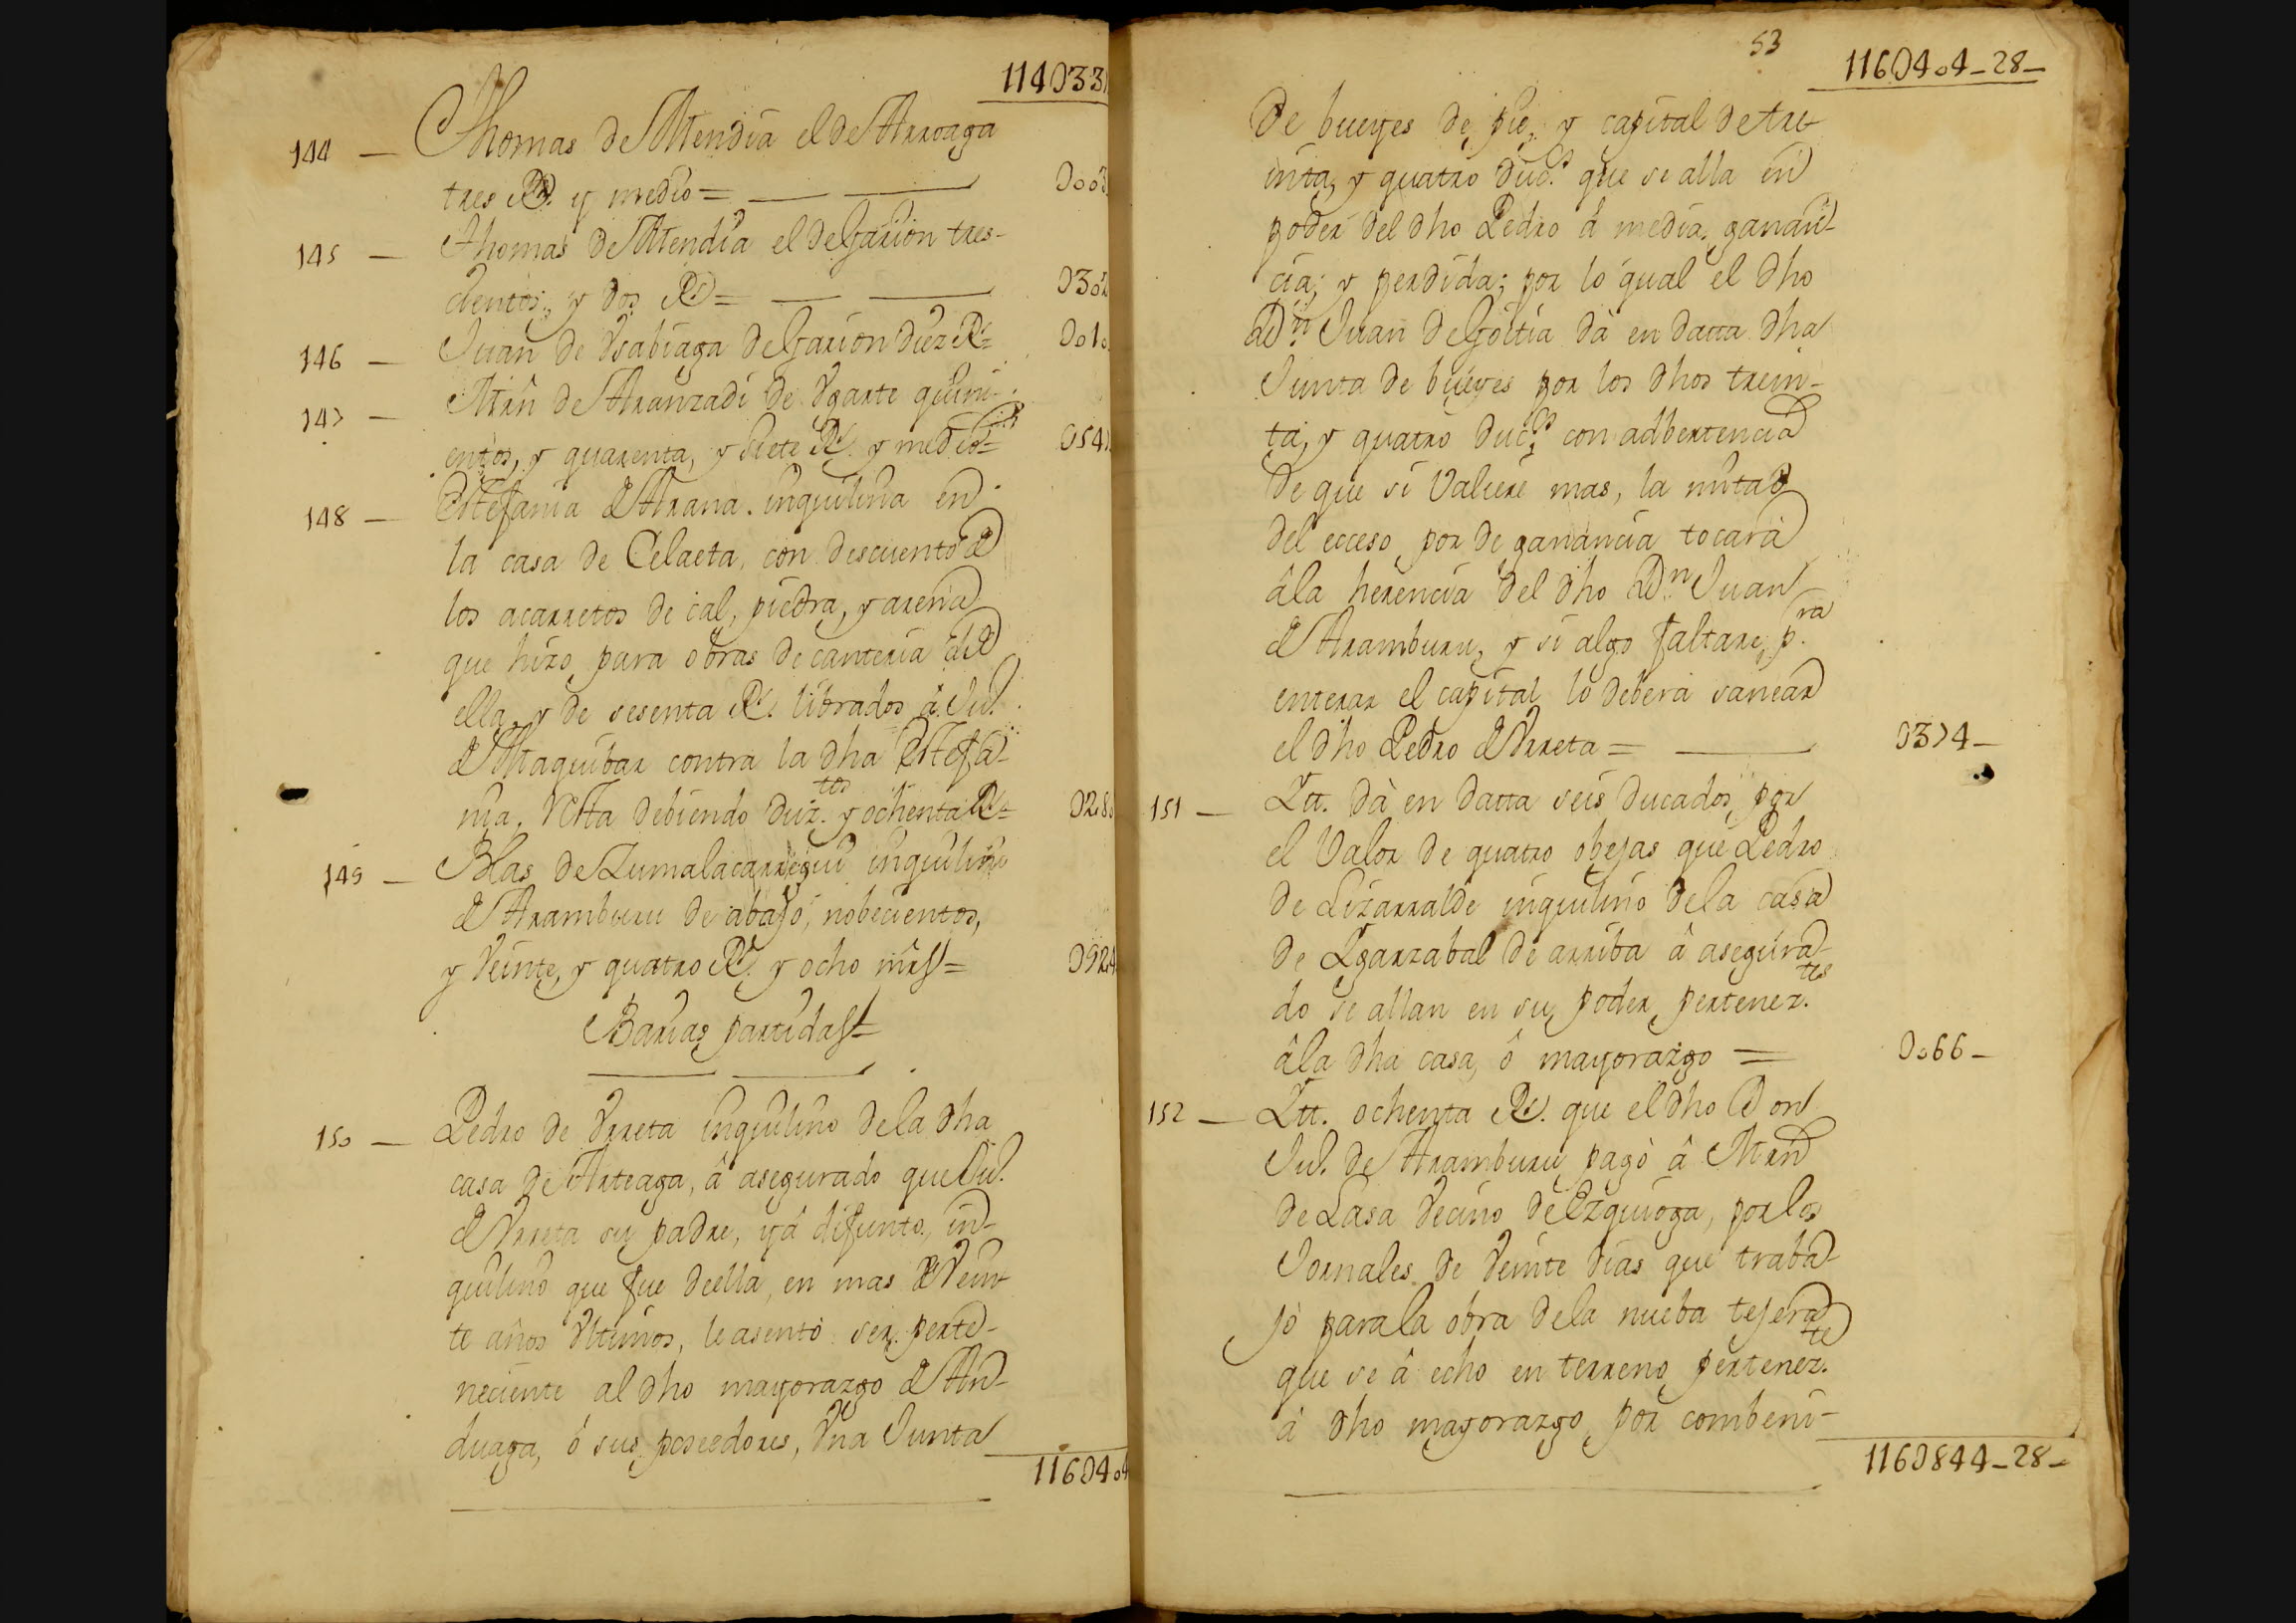 114U33
144 — Thomas de Mendia el de Arroaga
tres Rs. y medio = U003
145 — Thomas de Mendia el de Garion tres-
cientos, y dos Rs = U302
146 — Juan de Vsabiaga de Garion diez Rs = U010
147 — Mrn de Aranzadi de Vgarte quini-
entos, y quarenta, y siete Rs. y medio = U547
148 — Estefania de Arana inquilina en
la casa de Celaeta, con descuento de
los acarretos de cal, piedra, y arena
que hizo para obras de canteria de
ella, y de sesenta Rs. librados á Ju.
de Maquibar contra la dha Estefa-
nia. Resta debiendo duz.tos y ochenta Rs = U280
149 — Blas de Zumalacarregui inquilino
de Aramburu de abajo, nobecientos,
y Veinte, y quatro Rs. y ocho mrs = U924
Barias partidas =
150 — Pedro de Vrreta inquilino de la dha
casa de Arteaga, â asegurado que Ju.
de Vrreta su padre, yá difunto, in-
quilino que fue de ella, en mas de Vein-
te años Vltimos, le asentó ser perte-
neciente al dho mayorazgo de An-
duaga, ó sus poseedores, Vna Junta
116U404
53
116U404-28-
De bueyes de pie, y capital de tre-
inta, y quatro duc.s que se alla en
poder del dho Pedro á media ganan-
cia, y perdida; por lo qual el dho
Dn. Juan de Goitia dà en datta dha
Junta de bueyes por los dhos trein-
ta, y quatro duc.s con adbertencia
de que si Valiere mas, la mitad
del ecceso por de ganancia tocarà
âla herencia del dho Dn. Juan
de Aramburu, y si algo faltare p.ra
enterar el capital lo deberà sanear
el dho Pedro de Vrreta = U374-
151 — Ytt. dà en datta seis ducados por
el Valor de quatro obejas que Pedro
de Lizarralde inquilino dela casa
de Ygarzabal de arriba â asegura-
do se allan en su poder pertenez.tes
âla dha casa, ô mayorazgo = U066-
152 — Ytt. ochenta Rs. que el dho Don
Ju. de Aramburu pagò â Mrn
de Lasa Vecino de Ezquioga, por los
Jornales de Veinte dias que traba-
jò para la obra dela nueba tejera
que se â echo en terreno pertenez.te
à dho mayorazgo por combeni-
116U844-28-